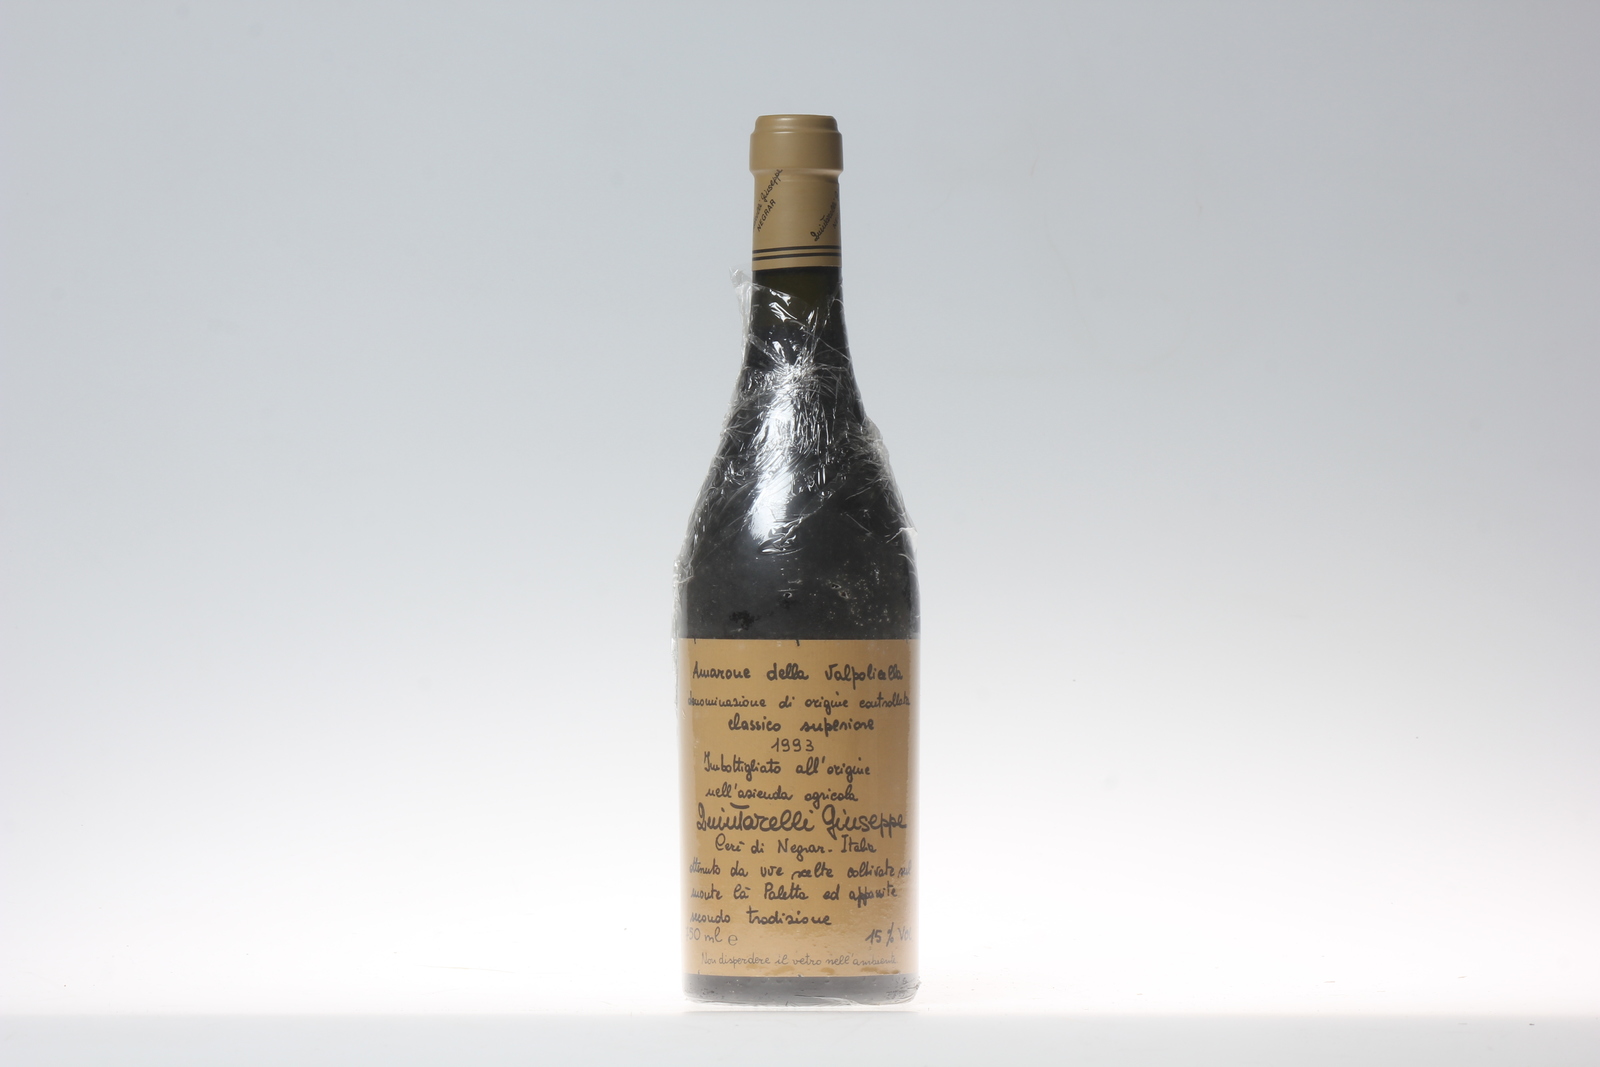 Giuseppe
NEGRAR
Quintarelli
Amarone della Valpolicella
denominazione di origine controllata
classico superiore
1993
Imbottigliato all'origine
nell'azienda agricola
Quintarelli Giuseppe
Cerè di Negrar - Italia
ottenuto da uve scelte coltivate sul
monte Cà Paletta ed appassite
secondo tradizione
750 ml e
15 % Vol
Non disperdere il vetro nell'ambiente